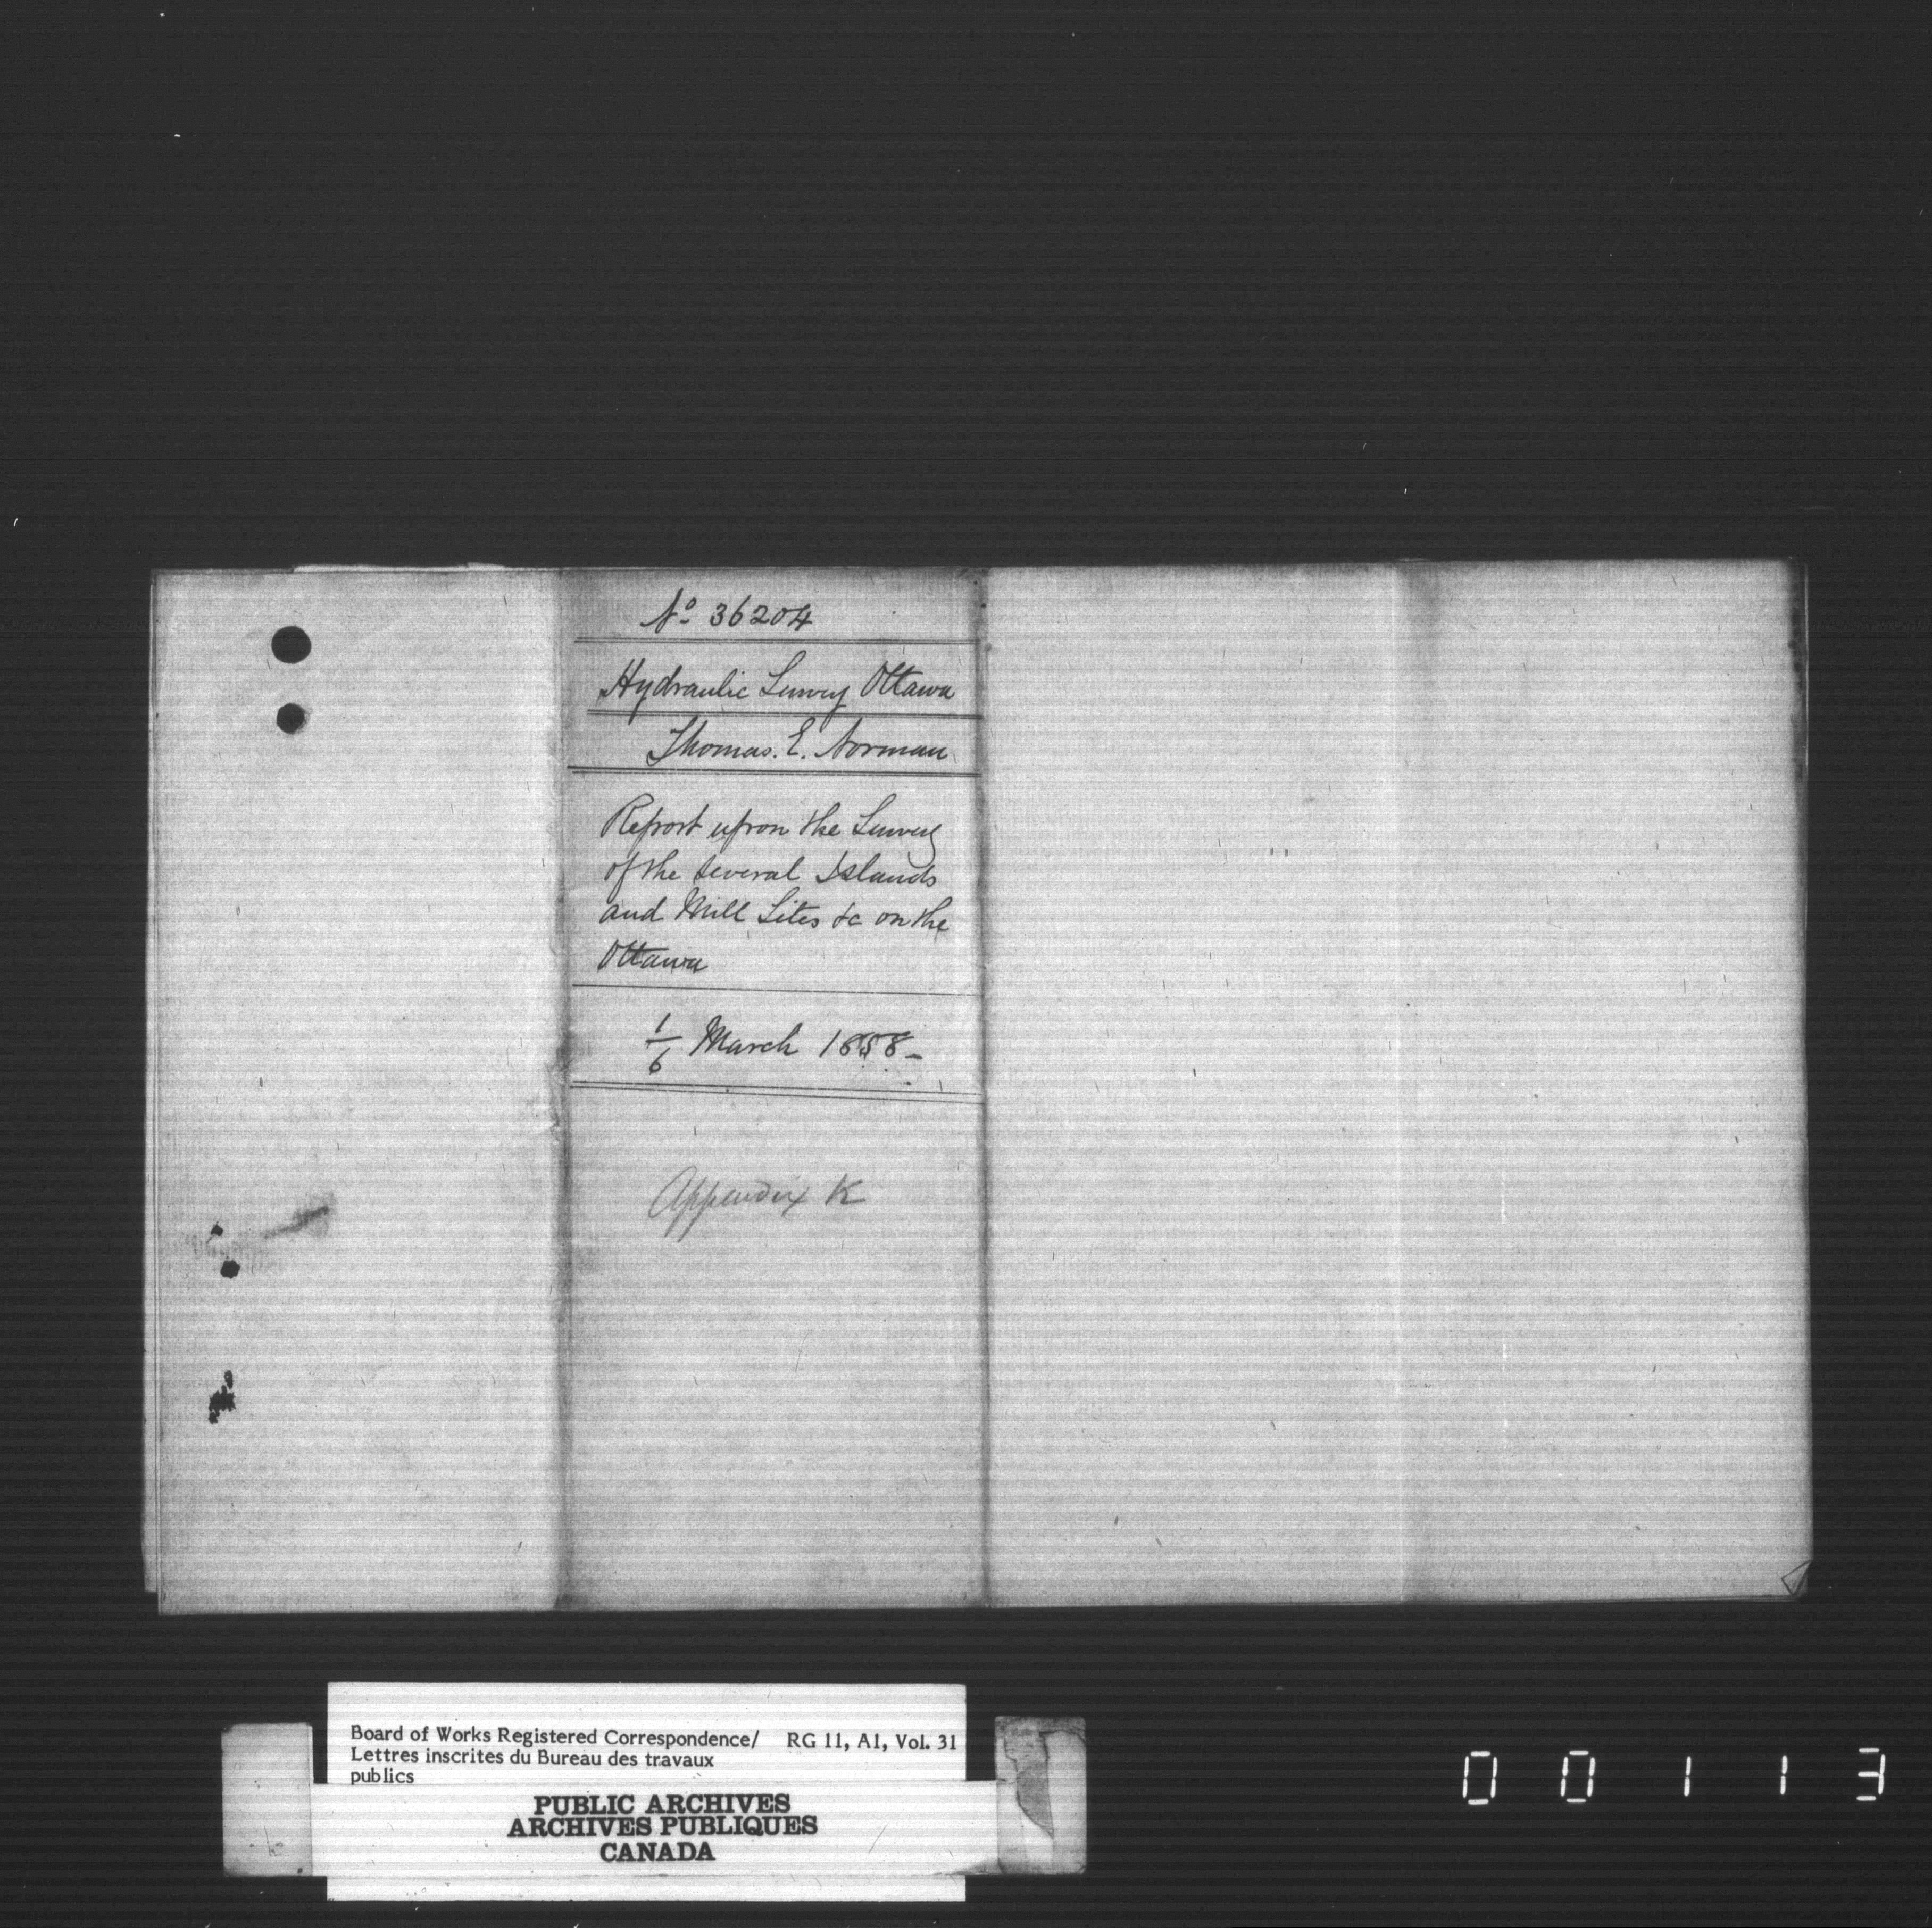 No 36204
Hydraulic Survey Ottawa
Thomas. E. Norman
Report upon the Survey
of the several Islands
and Mill Sites &c on the
Ottawa
1/6 March 1858-
Appendix K
Board of Works Registered Correspondence/ RG 11, A1, Vol. 31
Lettres inscrites du Bureau des travaux
publics
PUBLIC ARCHIVES
ARCHIVES PUBLIQUES
CANADA
00113